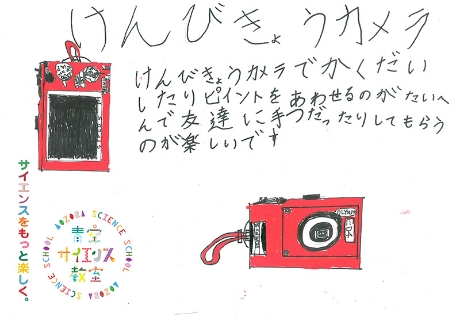 けんびきょうカメラ
けんびきょうカメラでかくだい
したりピイントをあわせるのがたいへ
んで友達に手つだったりしてもらう
のが楽しいです
サイエンスをもっと楽しく。
AOZORA SCIENCE SCHOOL
青空
サイエンス
教室
AOZORA SCIENCE SCHOOL